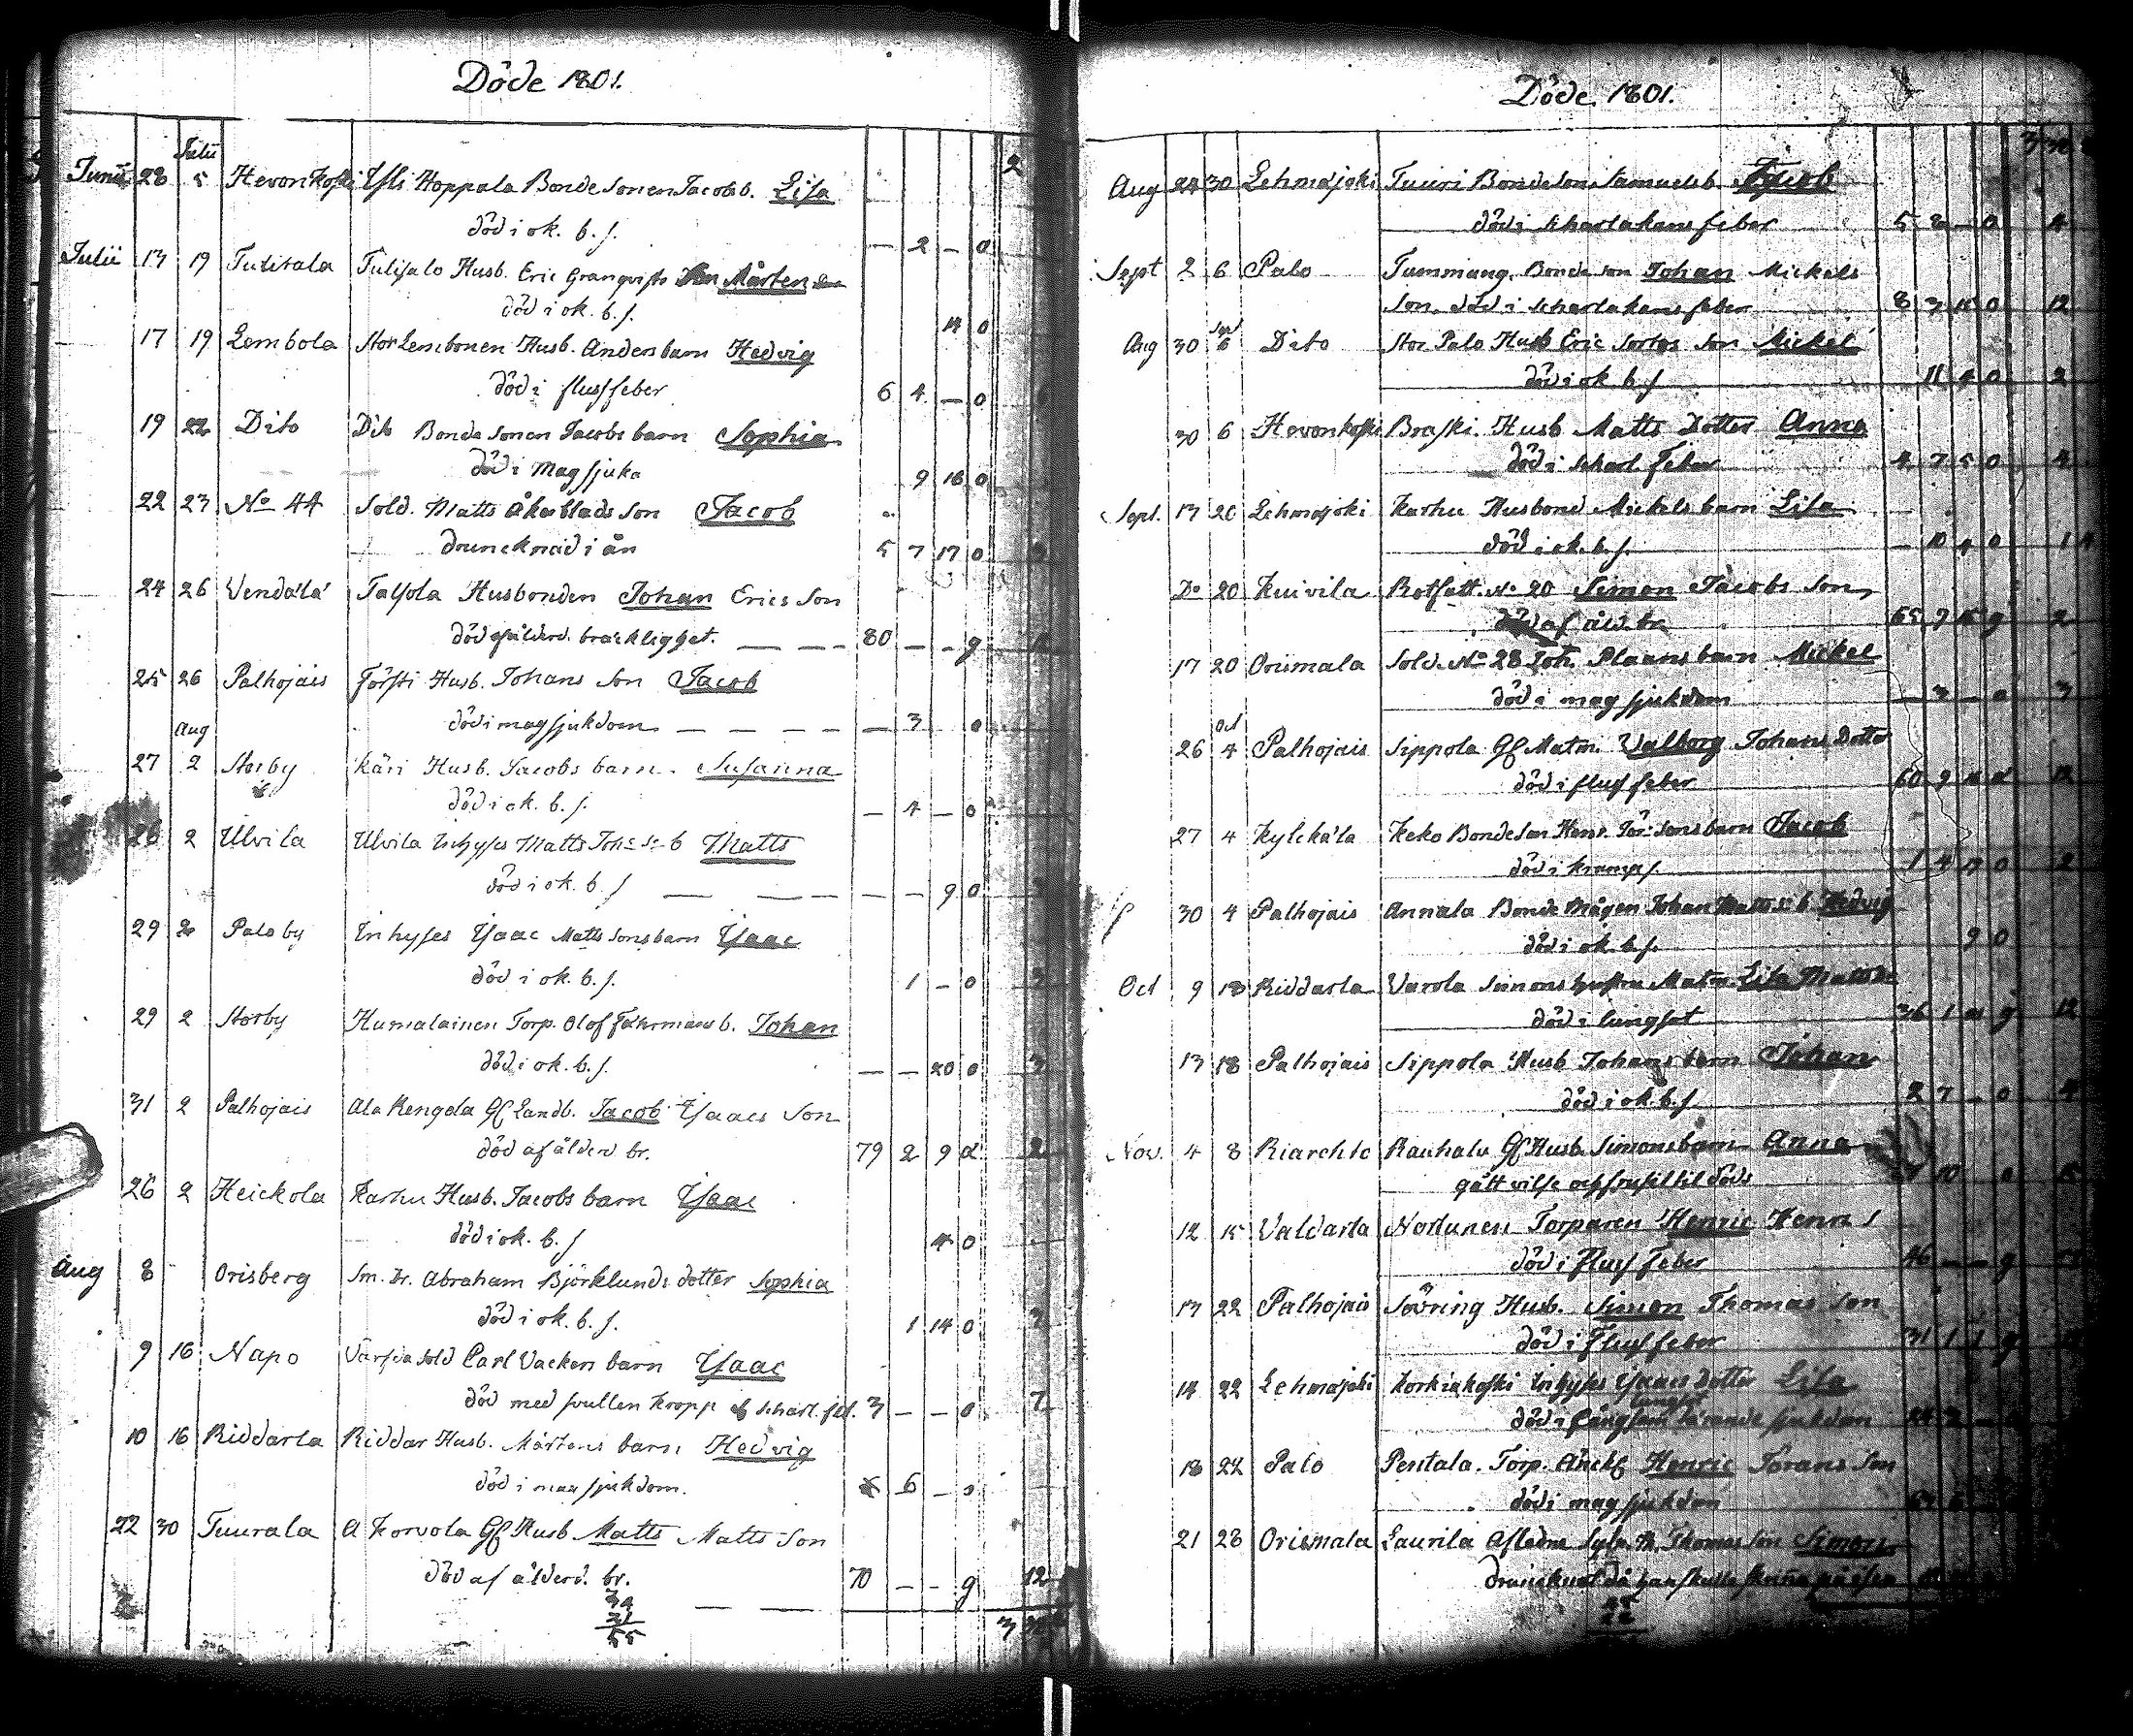 Döde 1801.
2
Junii 28 Julii 5 Hevonkoski Ysi Hoppala Bonde sonen Jacobs b. Lisa
död i ok. b. s. — 2 — 0
Julii 13 19 Tulisala Tulisalo Husb. Eric Granqvists Mårten
död i ok. b. s. 14 0
17 19 Lembola Stor Lembonen Husb. Anders barn Hedvig
död i fluss feber 6 4 — 0
19 22 Dito Dito Bonde sonen Jacobs barn Sophia
död i Mag sjuka 9 16 0
22 23 No 44 Sold. Matts Åkerblads Son Jacob
druncknad i ån 5 7 17 0
24 26 Vendälä Talsola Husbonden Johan Erics Son
död af ålderd. bräcklighet. — — — 80 — — g
25 26 Palhojais Försti Husb. Johans Son Jacob
död i mag sjukdom — — — — — 3 0
27 Aug 2 Storby Käri Husb. Jacobs barn. Susanna
död i ok. b. s. — 4 — 0
28 2 Ulvila Ulvila Inhyses Matts Johs Sons b Matts
död i ok. b. s — — — — — 9 0
29 2 Palo by Inhyses Isaac Matts sons barn Isaac
död i ok. b. s. 1 — 0
29 2 Storby Humalainen Torp. Olof Fährmans b. Johan
död i ok. b. s. — — 20 0 3
31 2 Palhojais Ala Rengola Gl Landb. Jacob Isaacs Son
död af ålderd br. 79 2 9 a 2
26 2 Heickola Karhu Husb. Jacobs barn Isaac
död i ok. b. s 4 0
Aug 8 Orisberg Sm. Dr. Abraham Björklunds dotter Sophia
död i ok. b. s. 1 14 0 2
9 16 Napo Värfva sold Carl Vackers barn Isaac
död med svullen kropp af scharl. feb. 3 — — 0 7
10 16 Riddarla Riddar Husb. Mårtens barn Hedvig
död i mag sjukdom. 6 — 0
22 30 Tuurala A Korvola Gl Husb Matts Matts Son
död af ålderd. br. 70 — — g 12
34
21
55
Döde 1801.
Aug 24 30 Lehmäjoki Tuuri Bonde Son Samuels b Jacob
död i scharlakans feber 5 2 — 0 4
Sept 2 6 Palo Tummung. Bonde son Johan Mickels
Son. död i scharlakens feber 8 3 15 0 12
Aug 30 Sept 6 Dito Stor Palo Husb Eric Son Mickel
död i ok b. s 11 4 0 2
30 6 Hevonkoski Braski Husb Matts Dotter Anna
död i scharl. Feber 4 7 5 0 4
Sept. 13 20 Lehmajoki Karhu Husbond Mickels barn Lisa
död i ok. b. s. — 10 4 0 1
Do 20 Kuivila Rotfatt. No 20 Simon Jacobs Son,
död af åld. br. 65 9 15 g 2
17 20 Orismala Sold. No 28 Joh. Plaans barn Mickel
död i mag sjukdom — 3 — 0 3
26 Oct 4 Palhojais Sippola Gl Matm. Valborg Johans Dotter
död i fluss feber 60 9 12
27 4 Kylckälä Keko Bonde Son Henr. barn Jacob
död i kramp. 1 4 0 2
30 4 Palhojais Annala Bonde Mågen Johan Matts s: b Hedvig
död i ok. b. s. 9 0
Oct 9 18 Riddarla Varola Simons hustru Matm. Lisa Matts
död i lungsot 36 1 g 12
13 18 Palhojais Sippola Husb Johans barn Johan
död i ok. b. s 2 7 — 0 4
Nov. 4 8 Kiarchto Rauhalu Gl Husb. Simons barn Anna
gått vilse och frusit til döds 10
12 15 Valdarla Nortunen Torparen Henric Henr. S
död i fluss Feber 46 — — g
13 22 Palhojais Sövring Husb. Simon Thomas Son
död i Fluss feber 31 1 g
14 22 Lehmäjoki Korkiakoski Inhyses Isaacs dotter Lisa
död i tärande sjukdom
18 22 Palo Pentala. Torp. Änckl Henric Jörans Son
död i mag sjukdom
21 28 Orismala Laurila Afledne Thomas Son Simon
drunknat då han skulle på isen